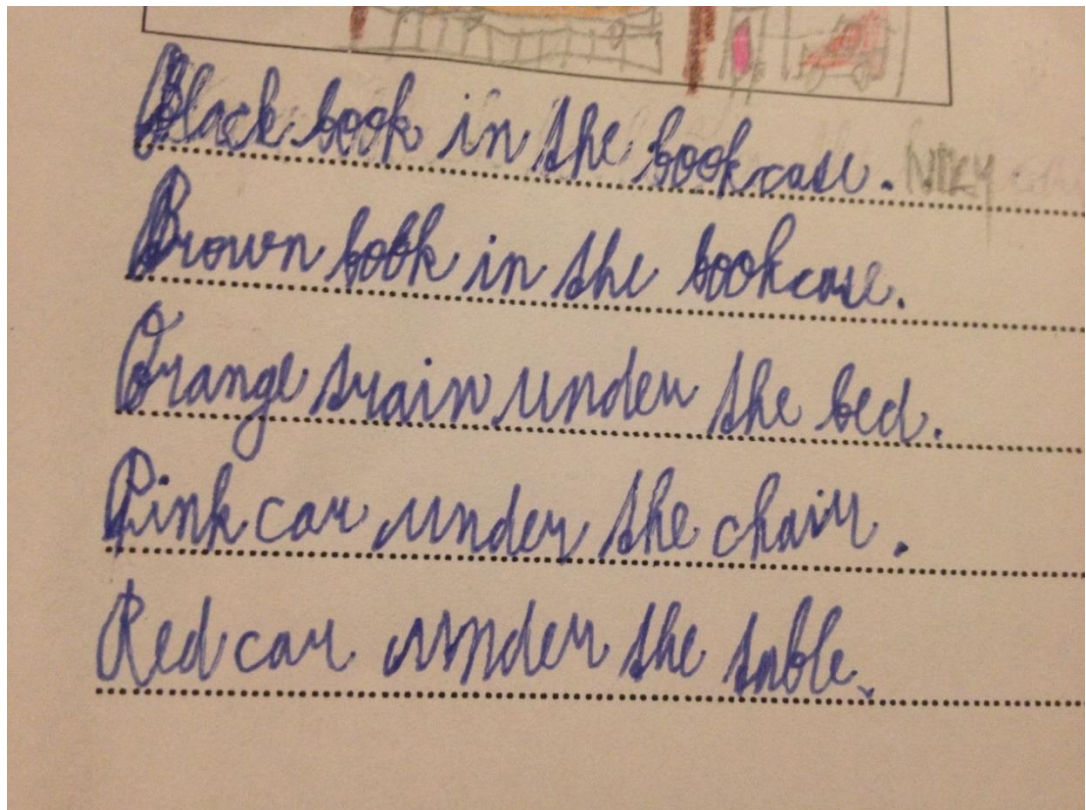 Black book in the bookcase.
Brown book in the bookcase.
Orange train under the bed.
Pink car under the chair.
Red car under the table.